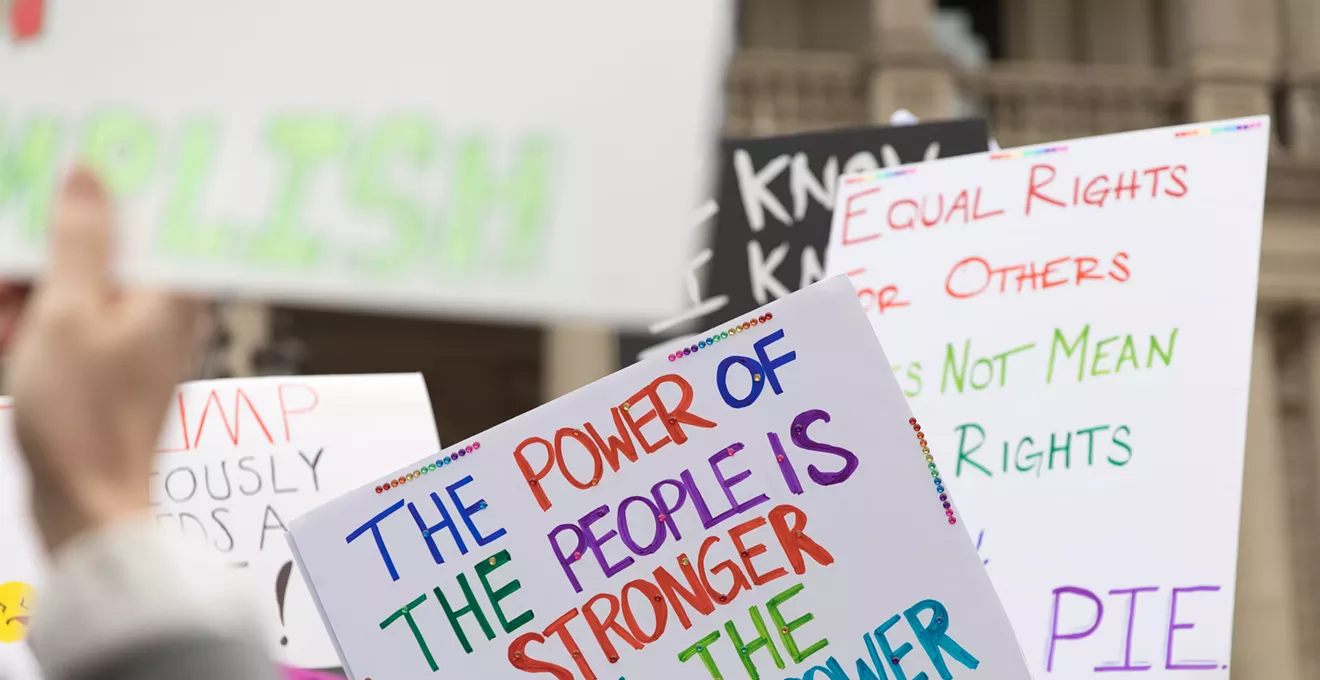 MPLISH
KNOW
I KN
EQUAL RIGHTS
FOR OTHERS
ES NOT MEAN
RIGHTS
PIE.
UMP
OUSLY
DS A
!
THE POWER OF
THE PEOPLE IS
STRONGER
THE
POWER